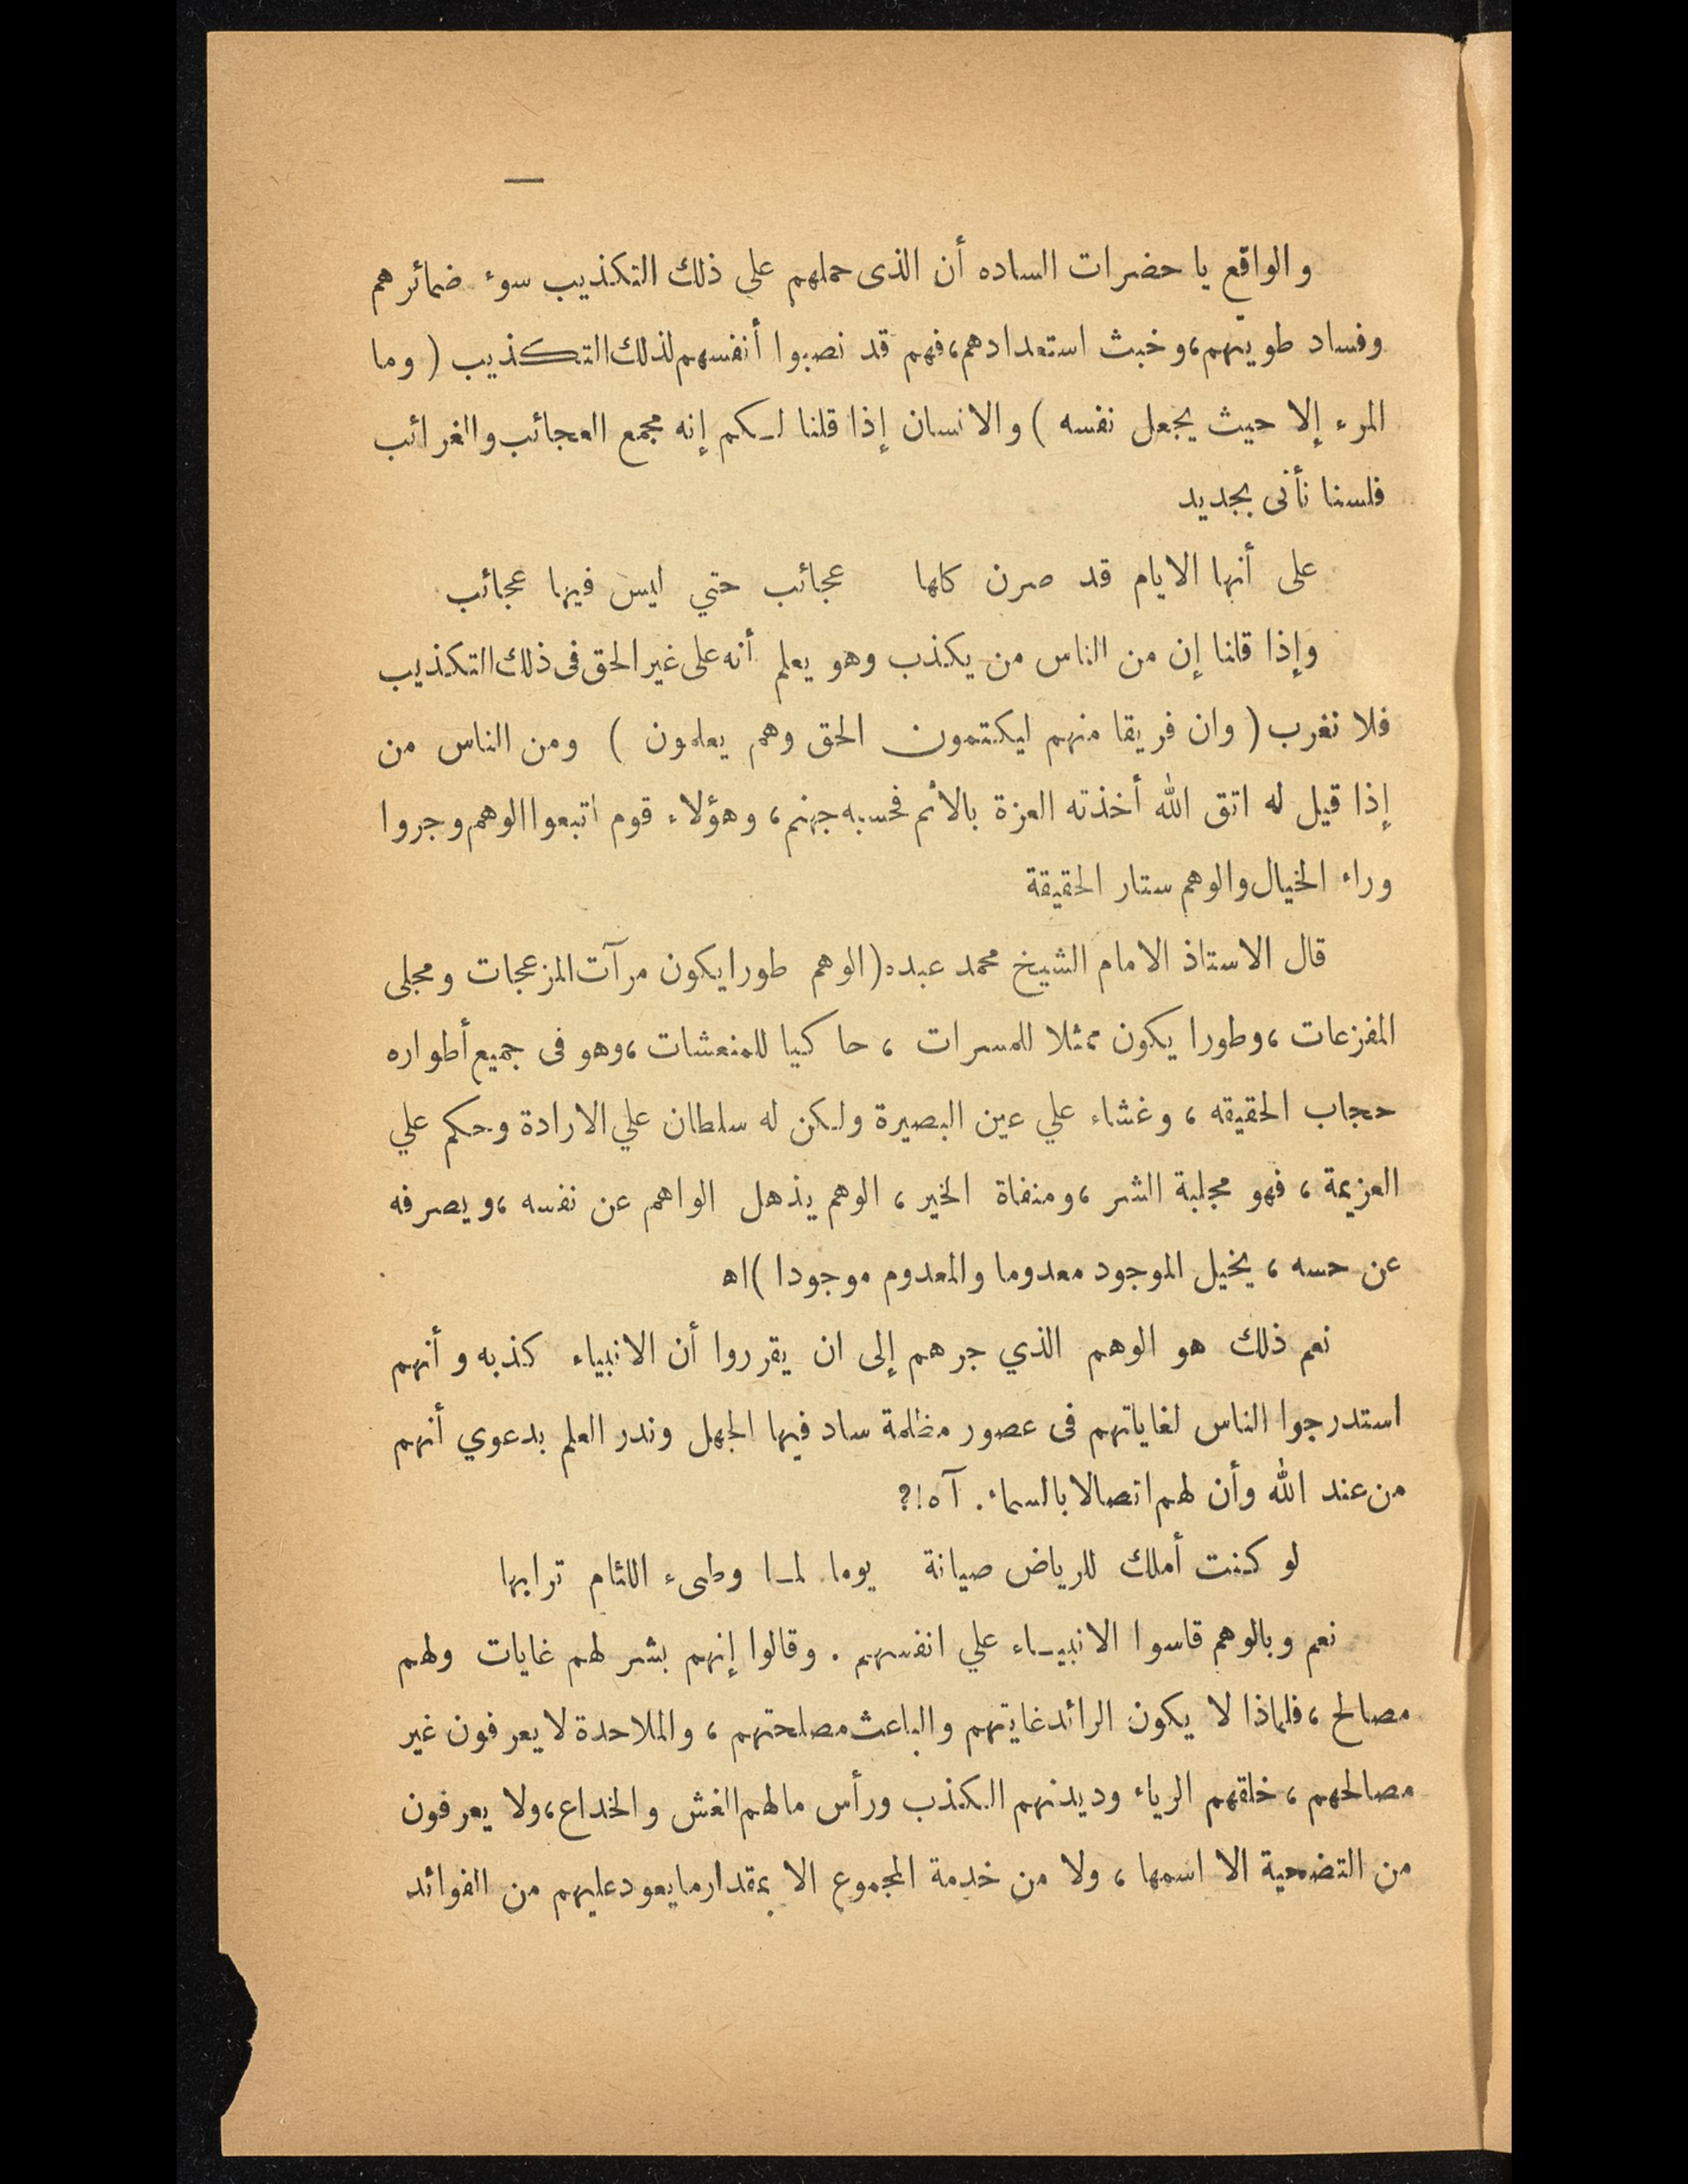 والواقع يا حضرات الساده أن الذى حملهم على ذلك التكذيب سوء ضمائرهم
وفساد طويتهم، وخبث استعدادهم، فهم قد نصبوا أنفسهم لذلك التكذيب ( وما
المرء إلا حيث يجعل نفسه ) والانسان إذا قلنا لكم إنه مجمع العجائب والغرائب
فلسنا نأتى بجديد
على أنها الايام قد صرن كلها عجائب حتي ليس فيها عجائب
وإذا قلنا إن من الناس من يكذب وهو يعلم أنه على غير الحق فى ذلك التكذيب
فلا نغرب ( وان فريقا منهم ليكتمون الحق وهم يعلمون ) ومن الناس من
إذا قيل له اتق الله أخذته العزة بالأثم فحسبه جهنم، وهؤلاء قوم اتبعوا الوهم وجروا
وراء الخيال والوهم ستار الحقيقة
قال الاستاذ الامام الشيخ محمد عبده (الوهم طورا يكون مرآت المزعجات ومجلى
المفزعات، وطورا يكون ممثلا للمسرات، حاكيا للمنعشات، وهو فى جميع أطواره
حجاب الحقيقه، وغشاء علي عين البصيرة ولكن له سلطان علي الارادة وحكم علي
العزيمة، فهو مجلبة الشر، ومنفاة الخير، الوهم يذهل الواهم عن نفسه، ويصرفه
عن حسه، يخيل الموجود معدوما والمعدوم موجودا ) اه
نعم ذلك هو الوهم الذي جرهم إلى ان يقرروا أن الانبياء كذبه وأنهم
استدرجوا الناس لغاياتهم فى عصور مظلمة ساد فيها الجهل وندر العلم بدعوي أنهم
من عند الله وأن لهم اتصالا بالسماء. آه!؟
لو كنت أملك للرياض صيانة يوما لما وطىء اللئام ترابها
نعم وبالوهم قاسوا الانبياء علي انفسهم. وقالوا إنهم بشر لهم غايات ولهم
مصالح، فلماذا لا يكون الرائد غايتهم والباعث مصلحتهم، والملاحدة لا يعرفون غير
مصالحهم، خلقهم الرياء وديدنهم الكذب ورأس مالهم الغش والخداع، ولا يعرفون
من التضحية الا اسمها، ولا من خدمة المجموع الا بمقدار ما يعود عليهم من الفوائد